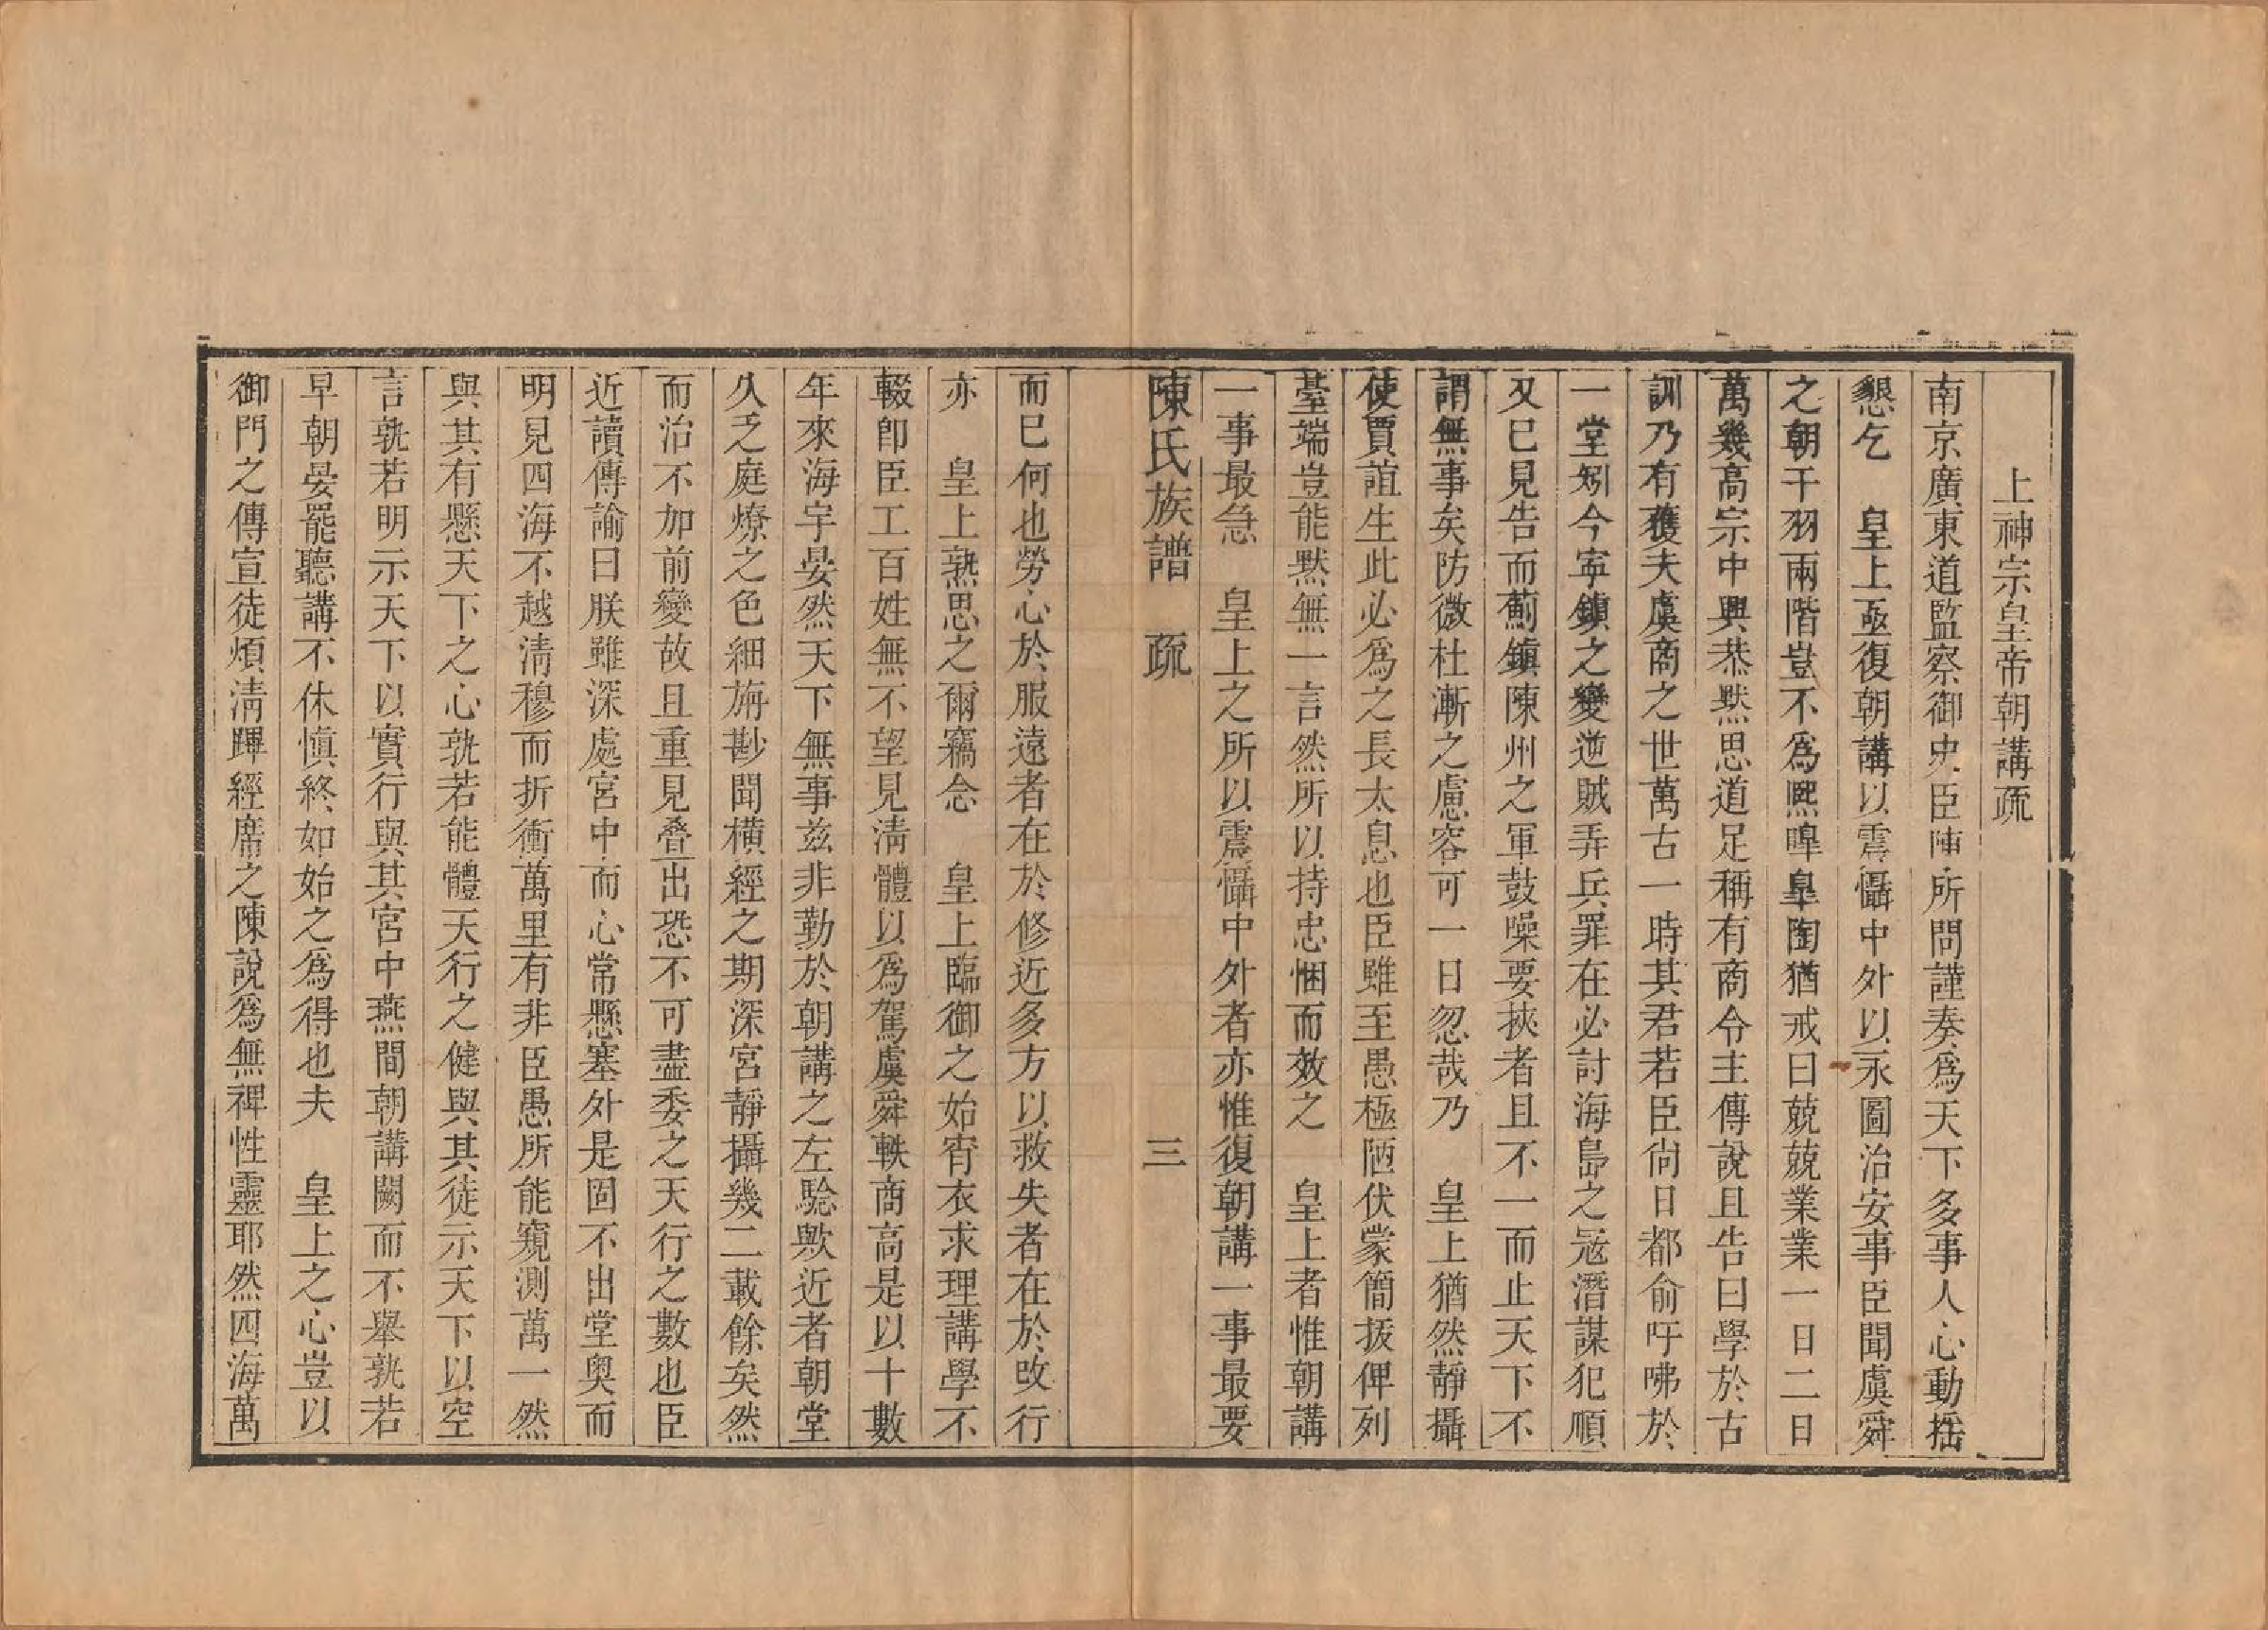 上神宗皇帝朝講疏
南京廣東道監察御史臣陳所問謹奏爲天下多事人心動搖
懇乞　皇上亟復朝講以震懾中外以永圖治安事臣聞虞舜
之朝干羽兩階豈不爲熙皥臯陶猶戒曰兢兢業業一日二日
萬幾高宗中興恭默思道足稱有商令主傳說且告曰學於古
訓乃有獲夫虞商之世萬古一時其君若臣尙日都俞吁咈於
一堂矧今寧鎭之變逆賊弄兵罪在必討海島之冦潛謀犯順
又已見告而薊鎭陳州之軍鼓噪要挾者且不一而止天下不
謂無事矣防微杜漸之慮容可一日忽哉乃　皇上猶然靜攝
使賈誼生此必爲之長太息也臣雖至愚極陋伏蒙簡拔俾列
臺端豈能默無一言然所以持忠悃而效之　皇上者惟朝講
一事最急　皇上之所以震懾中外者亦惟復朝講一事最要
陳氏族譜　疏　三
而已何也勞心於服遠者在於修近多方以救失者在於改行
亦　皇上熟思之爾竊念　皇上臨御之始宵衣求理講學不
輟卽臣工百姓無不望見淸體以爲駕虞舜軼商高是以十數
年來海宇晏然天下無事兹非勤於朝講之左騐歟近者朝堂
久乏庭燎之色細旃尠聞橫經之期深宮靜攝幾二載餘矣然
而治不加前變故且重見叠出恐不可盡委之天行之數也臣
近讀傳諭曰朕雖深處宮中而心常懸塞外是固不出堂奧而
明見四海不越淸穆而折衝萬里有非臣愚所能窺測萬一然
與其有懸天下之心孰若能體天行之健與其徒示天下以空
言孰若明示天下以實行與其宮中燕間朝講闕而不舉孰若
早朝晏罷聽講不休愼終如始之爲得也夫　皇上之心豈以
御門之傳宣徒煩淸蹕經席之陳說爲無裨性靈耶然四海萬